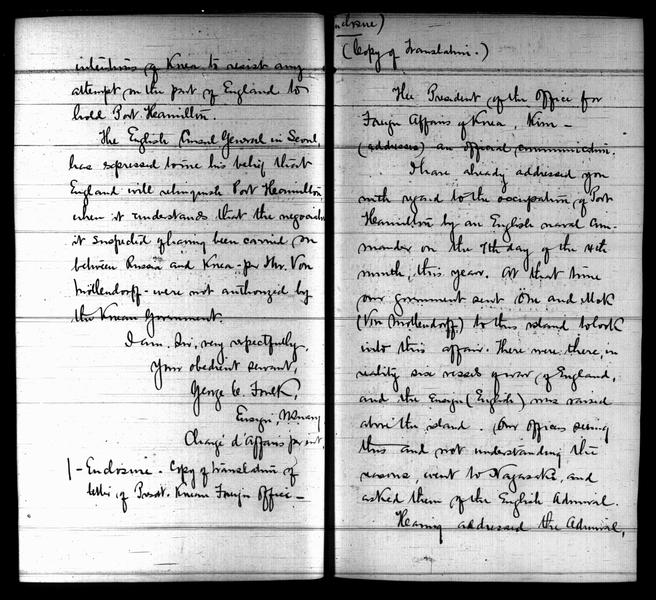 intentions of Korea to resist any
attempt on the part of England to
hold Port Hamilton.
The English Consul General in Seoul,
has expressed to me his belief that
England will relinquish Port Hamilton,
when it understands that the negociations
it suspected of having been carried on
between Russia and Korea - per Mr. Von
Möllendorff - were not authorized by
the Korean Government.
I am. Sir, very respectfully,
Your obedient servant,
George C. Foulk,
Ensign, U.S. Navy
Chargé d'Affairs
1 - Enclosure - Copy of translation of
letter, of Presdt. Korean Foreign Office -
(Enclosure)
(Copy of Translation.)
The President of the Office for
Foreign Affairs of Korea, Kim -
(addresses) an official communication.
I have already addressed you
with regard to the occupation of Port
Hamilton by an English naval com-
mander on the 7th day of the 4th
month, this year. At that time
our government sent Om and Mok
(Von Möllendorff) to this island to look
into this affair. There were there, in
reality six vessels of war of England,
and the Ensign (English) was raised
above the island. Our officers seeing
this and not understanding the
reasons, went to Nagasaki, and
asked them of the English Admiral.
Having addressed the Admiral,